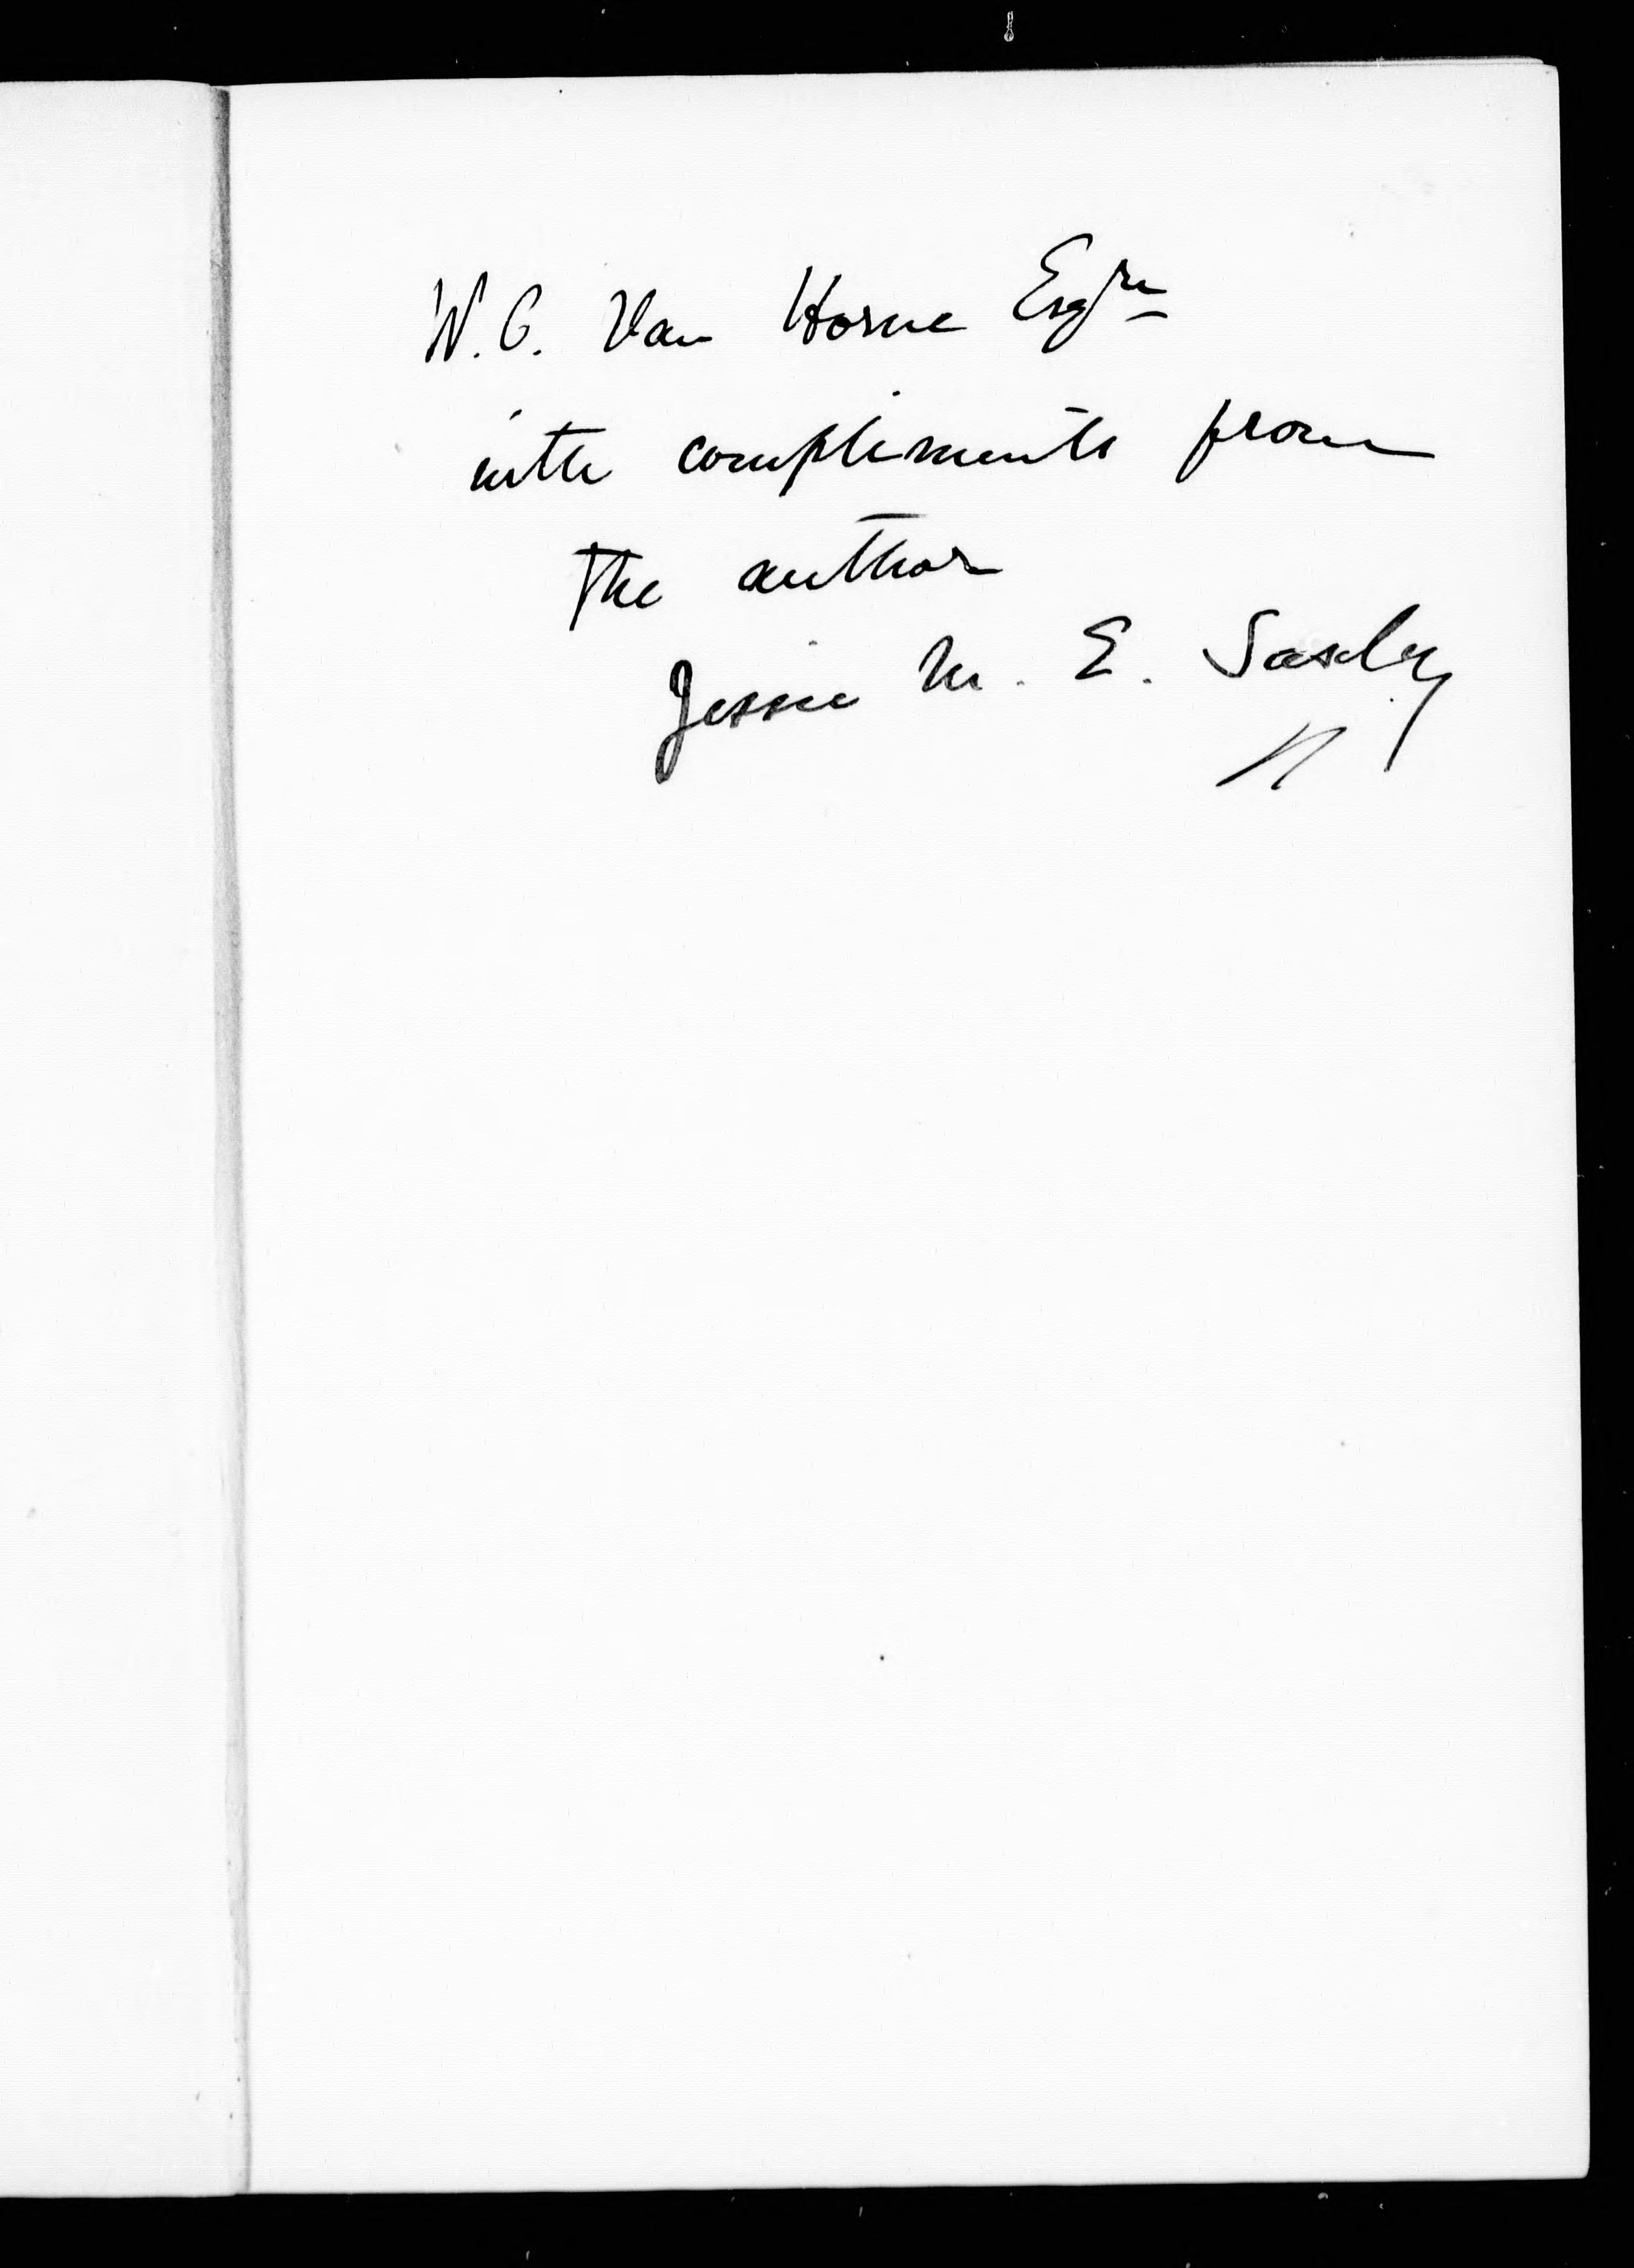 W. C. Van Horne Esqre
with compliments from
the author
Jessie M. E. Saxby